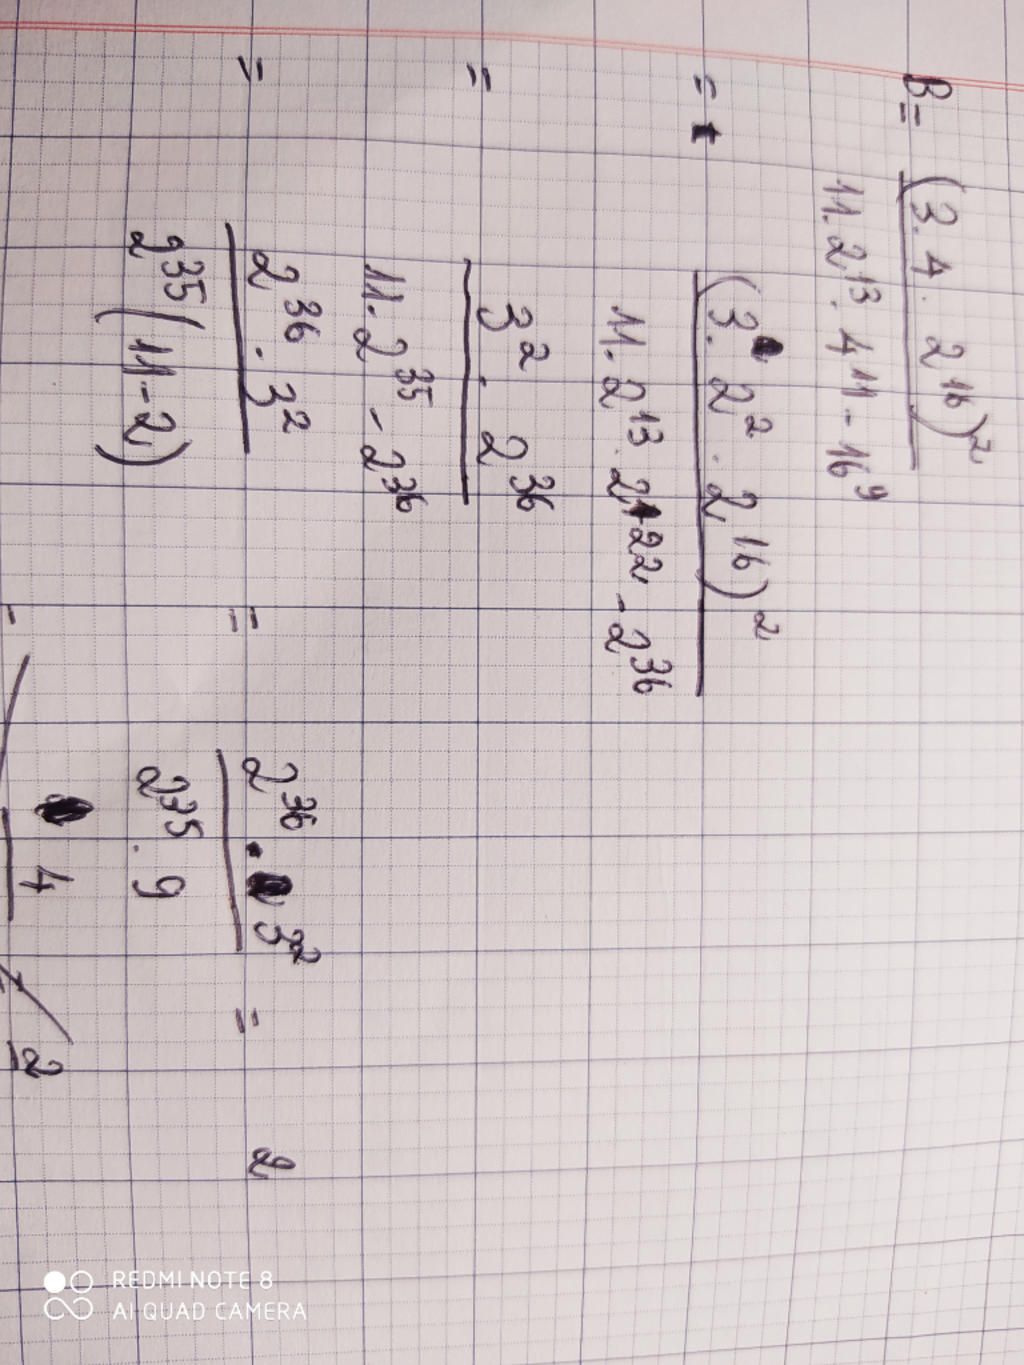 B = (3.4.2^16)^2 / 11.2^13.4^11 - 16^9
= (3.2^2.2^16)^2 / 11.2^13.2^22 - 2^36
= 3^2.2^36 / 11.2^35 - 2^36
= 2^36.3^2 / 2^35(11-2) = 2^36.3^2 / 2^35.9 = 2
= 4
2
REDMI NOTE 8
AI QUAD CAMERA